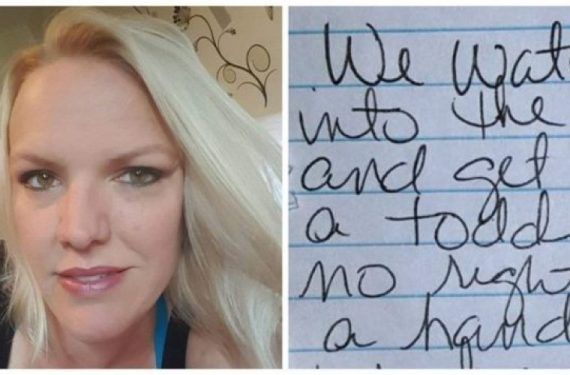 We wat
into the
and get
a todd
no righ
a hand